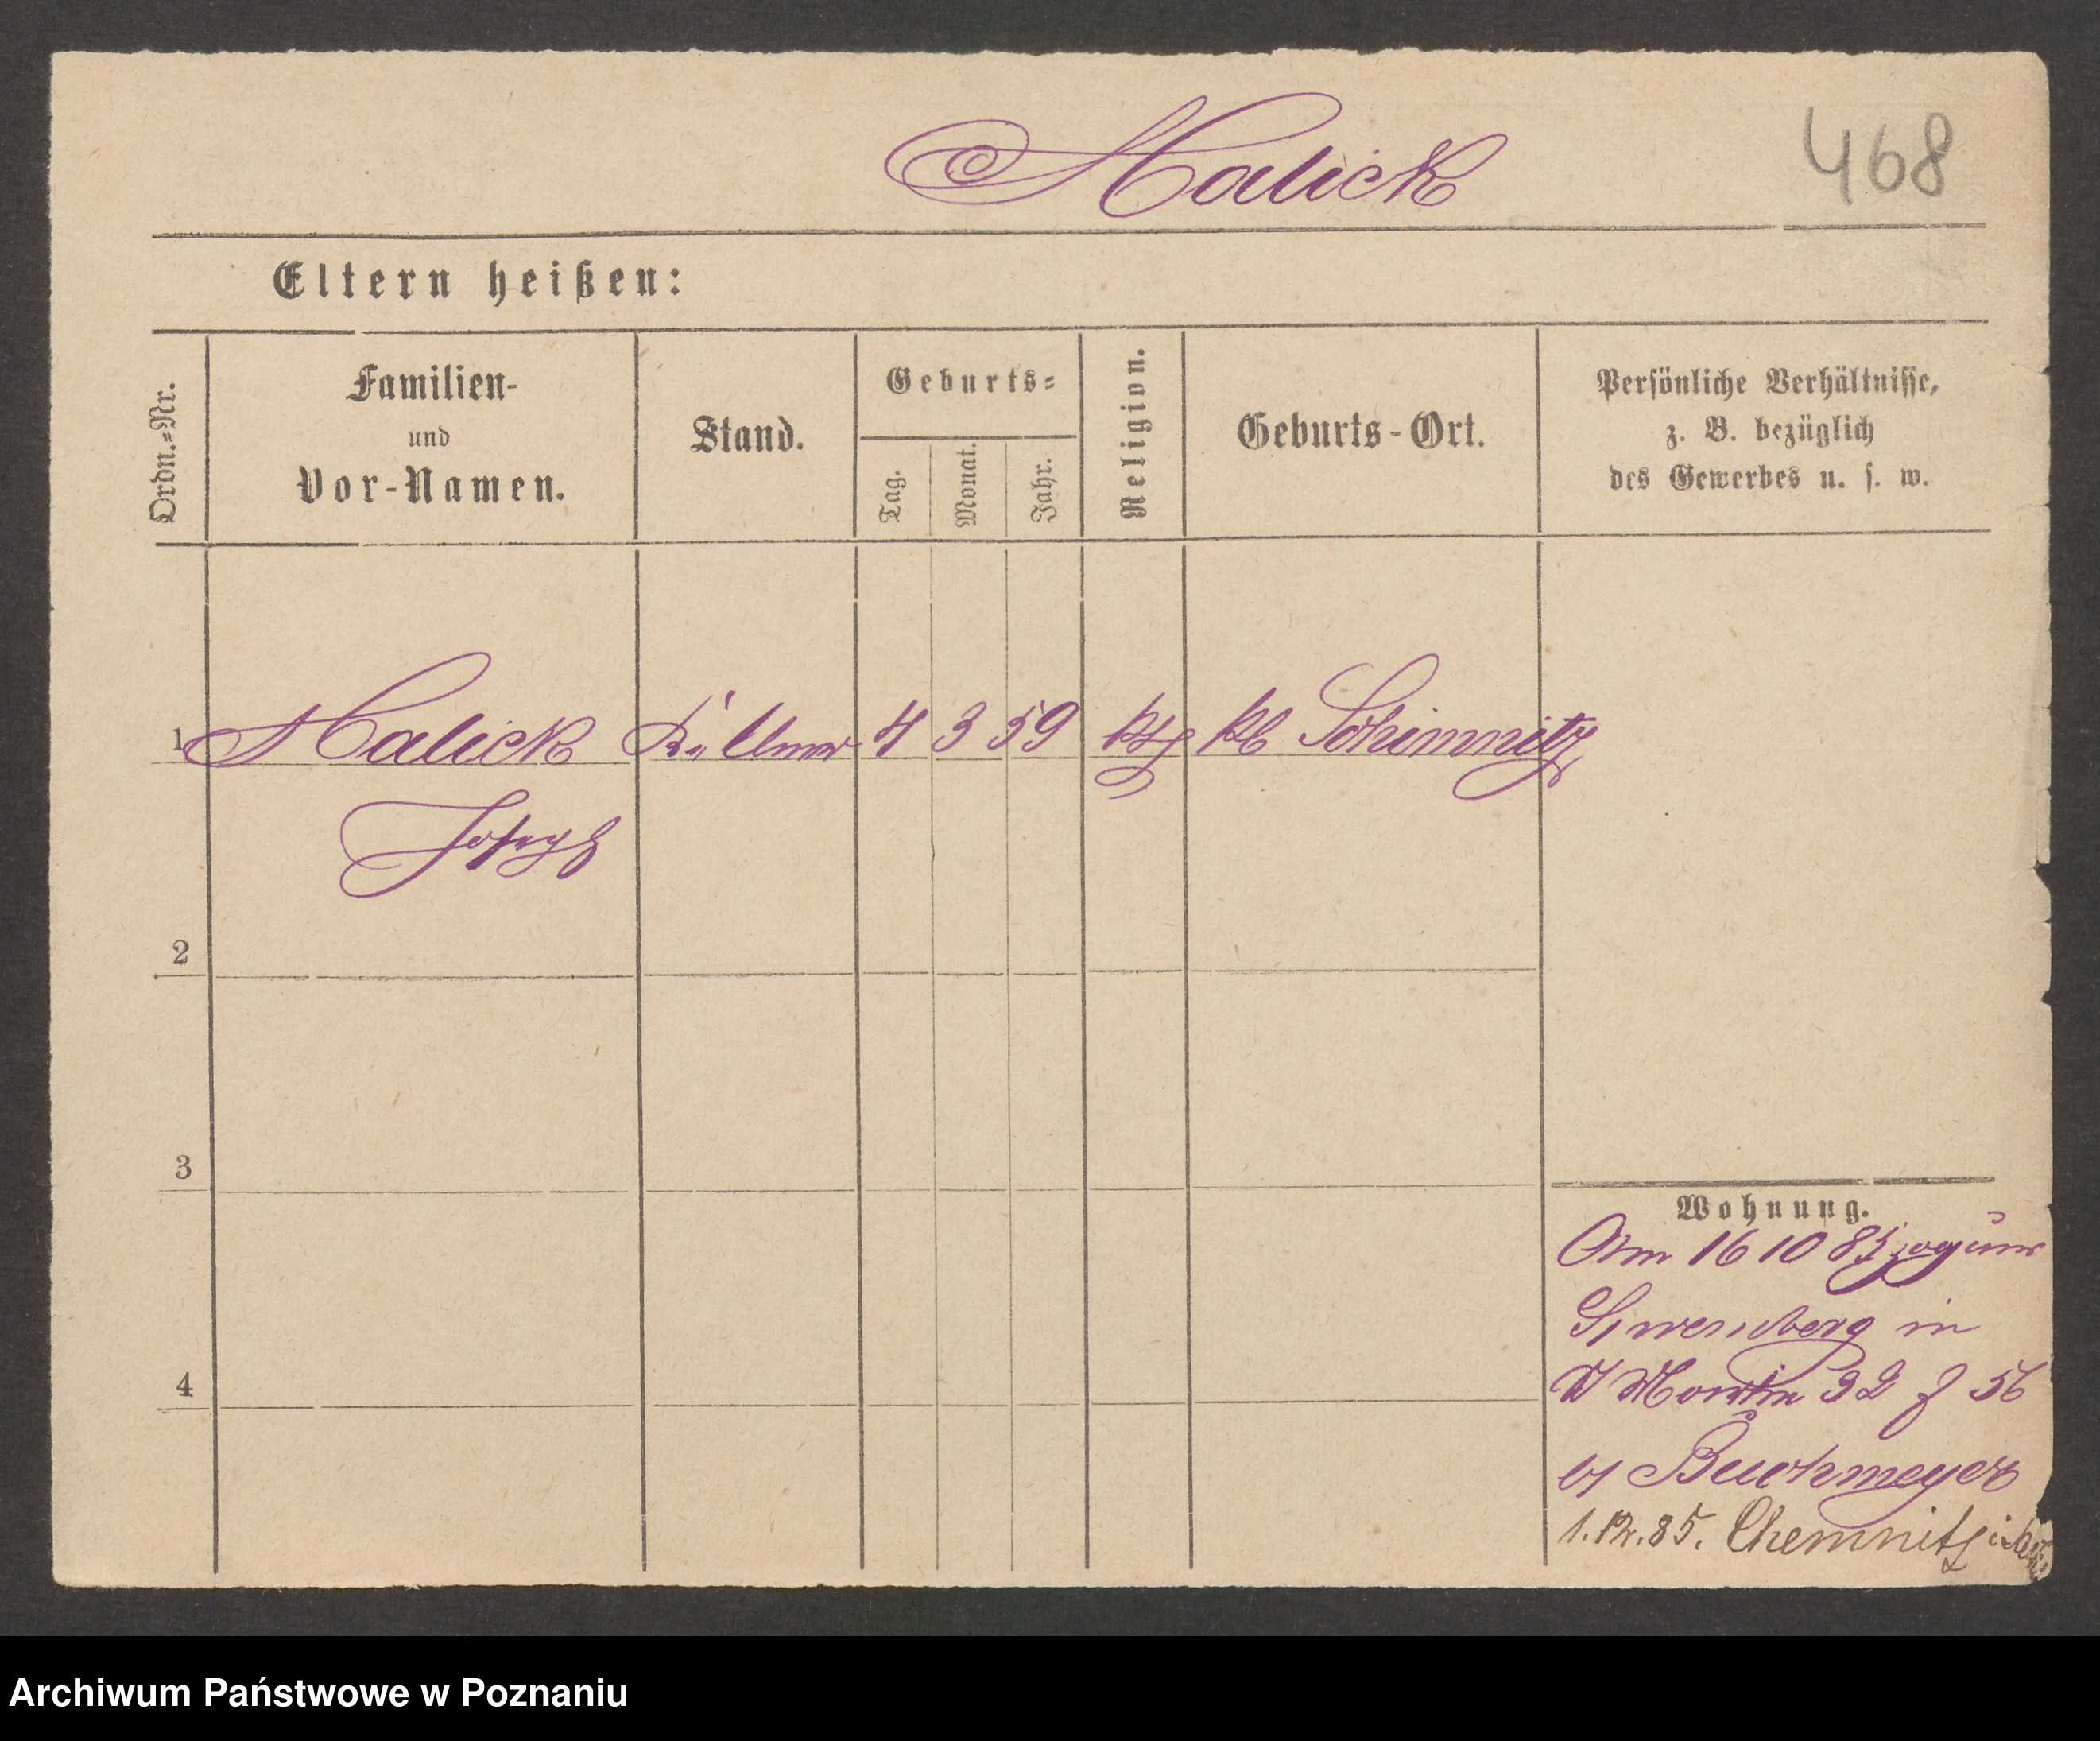 Halick
468
Eltern heißen:
Ordn.=Nr.
Familien-
und
Vor-Namen.
Stand.
Geburts=
Tag.
Monat.
Jahr.
Religion.
Geburts-Ort.
Persönliche Verhältnisse,
z. B. bezüglich
des Gewerbes u. s. w.
1 Halick Kellner 4 3 59 kth kl Schimnitz
Joseph
2
3
4
Wohnung.
Am 16 10 85 zog
in
Martin 32 56
Buchmeyer
1.12.85. Chemnitz
Archiwum Państwowe w Poznaniu